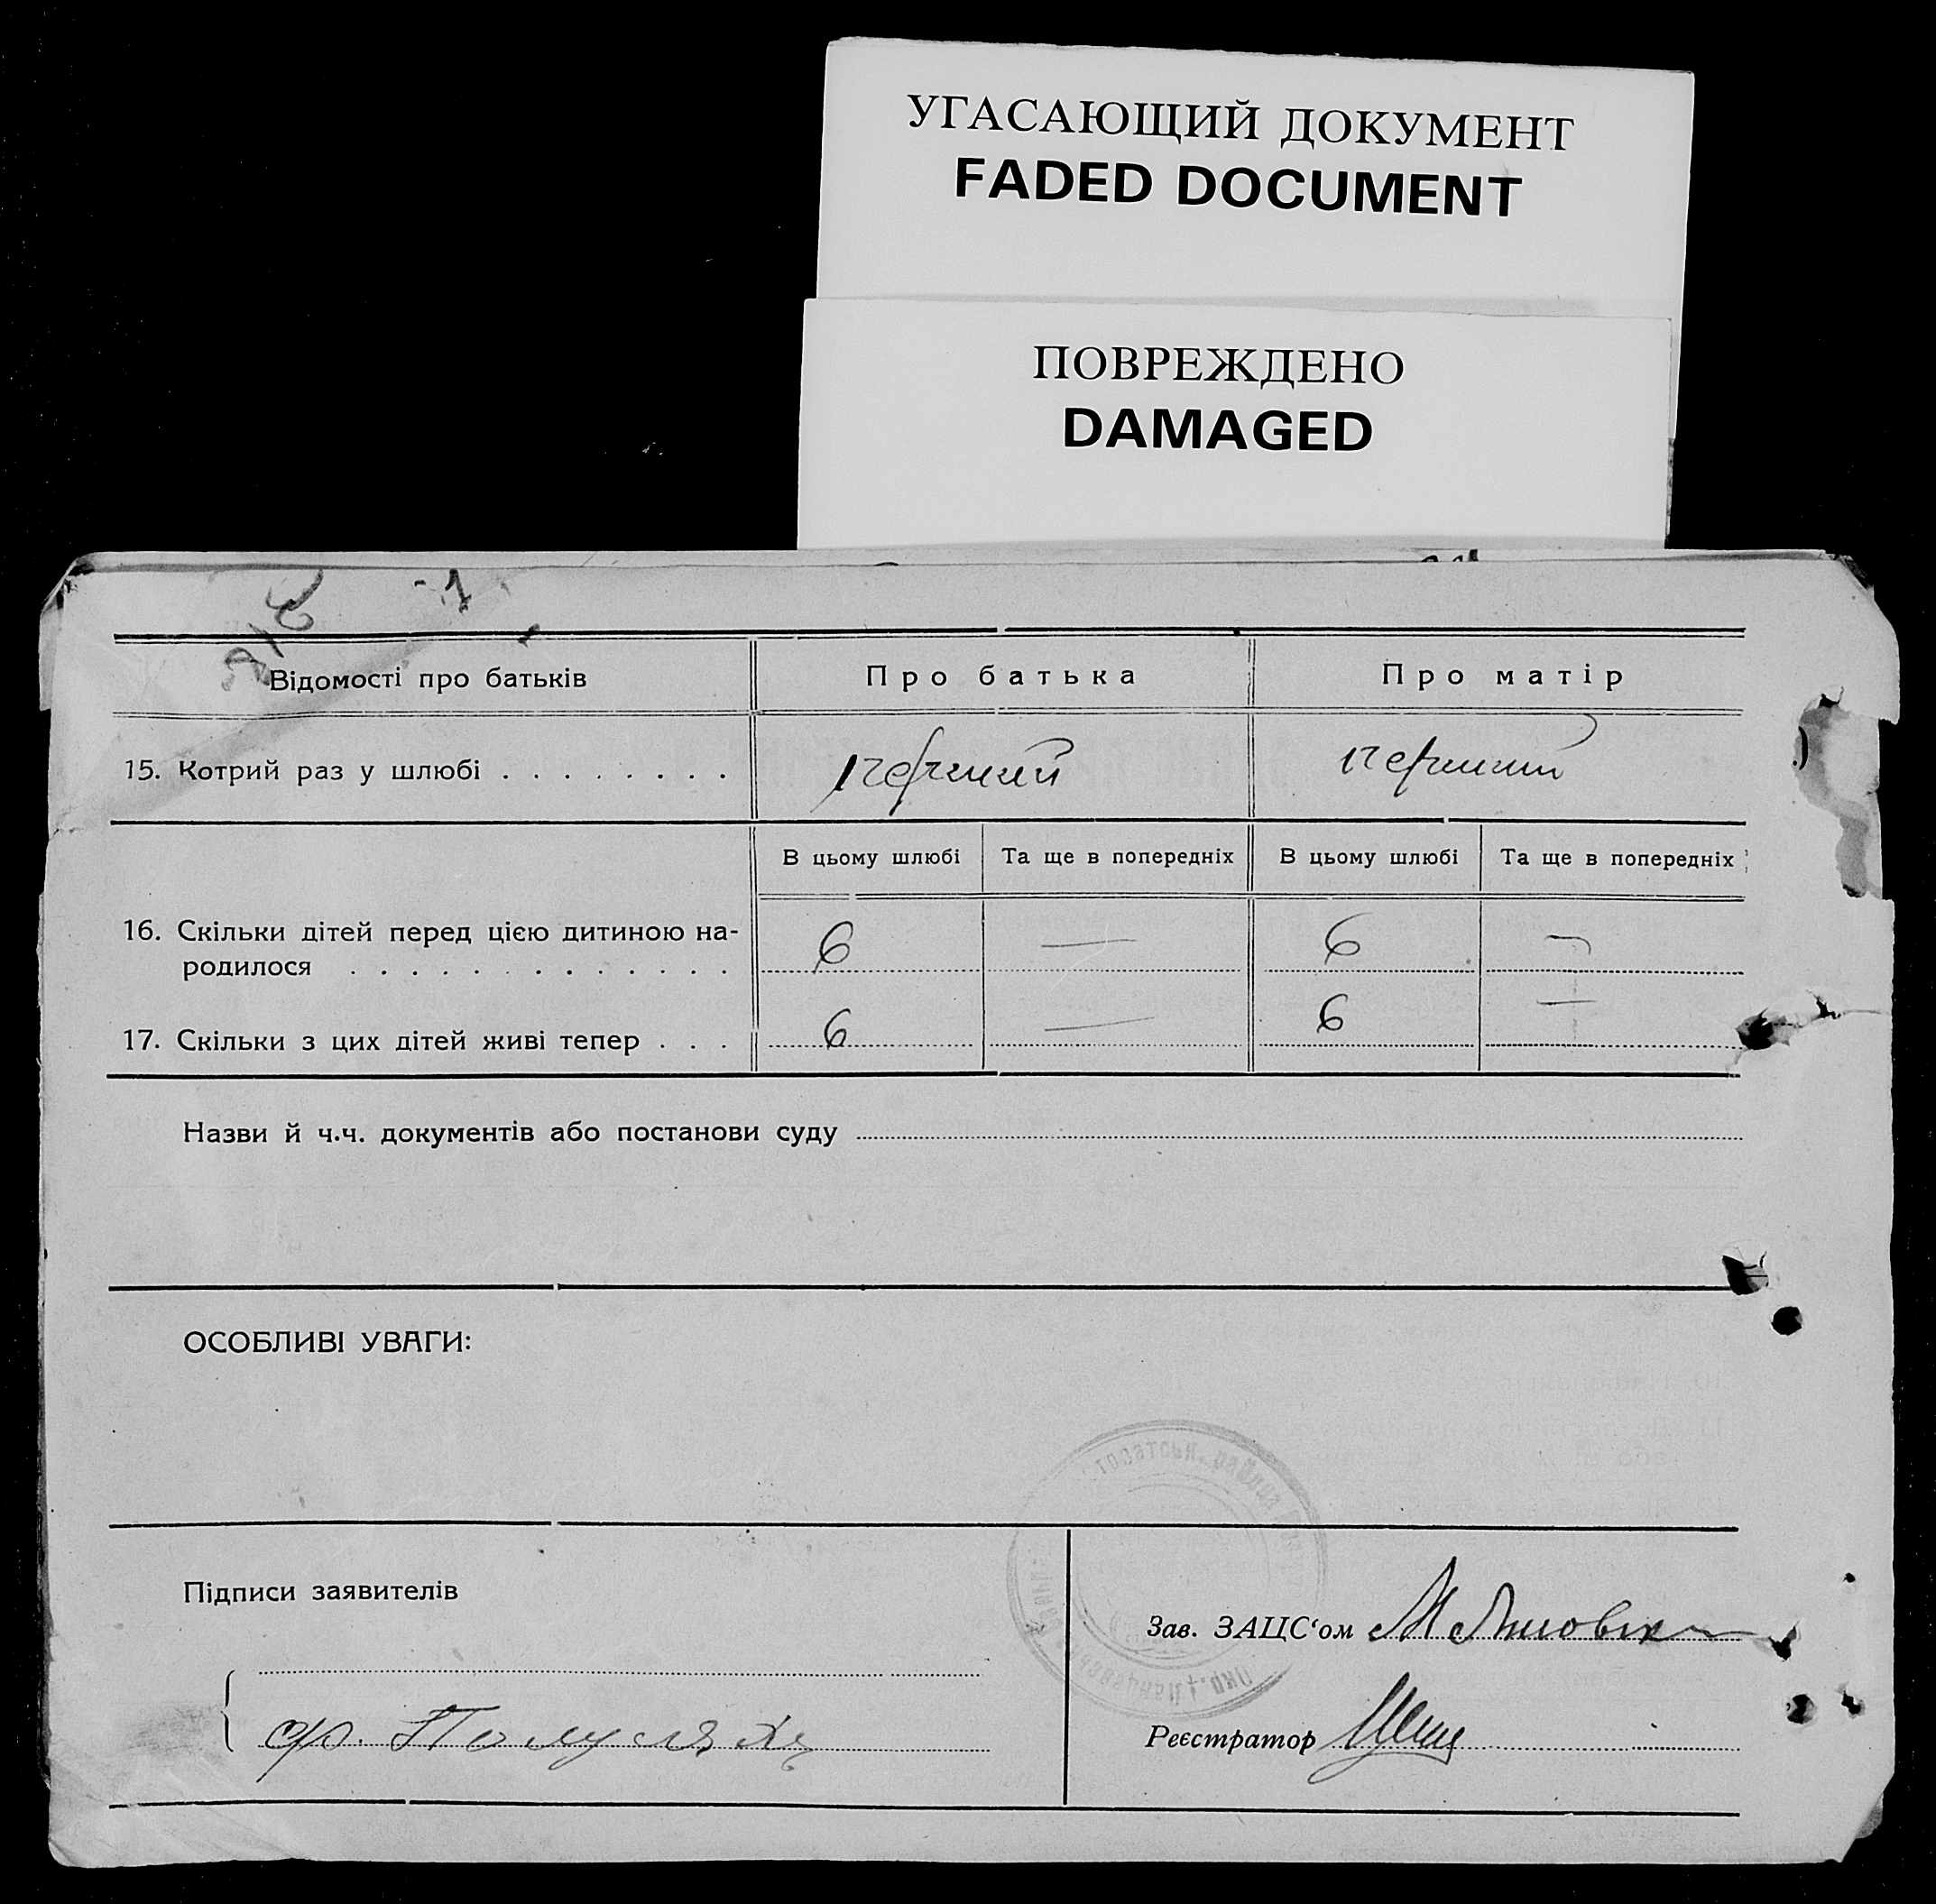 УГАСАЮЩИЙ ДОКУМЕНТ
FADED DOCUMENT
ПОВРЕЖДЕНО
DAMAGED
Відомості про батьків Про батька Про матір
15. Котрий раз у шлюбі . . . . . . . . перший перший
В цьому шлюбі Та ще в попередніх В цьому шлюбі Та ще в попередніх
16. Скільки дітей перед цією дитиною на-
родилося . . . . . . . . . . . . . 6 — 6 —
17. Скільки з цих дітей живі тепер . . . 6 — 6 —
Назви й ч.ч. документів або постанови суду
ОСОБЛИВІ УВАГИ:
Підписи заявителів
Зав. ЗАЦС‘ом
Реєстратор